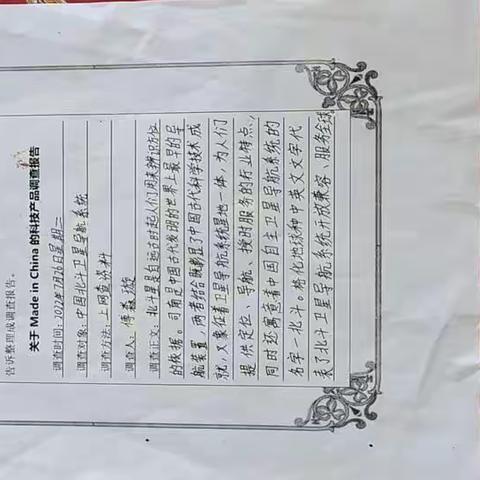 告诉整理成调查报告。
关于 Made in China 的科技产品调查报告
调查时间:2022年7月26日星期二
调查对象:中国北斗卫星导航系统
调查方法:上网查资料
调查人:傅淼璇
调查正文:北斗星是自远古时起人们用来辨识方位
的依据。司南是中国古代发明的世界上最早的导
航装置,两者结合既彰显了中国古代科学技术成
就,又象征着卫星导航系统星地一体,为人们
提供定位、导航、授时服务的行业特点。
同时还寓意着中国自主卫星导航系统的
名字一北斗。格化地球和中英文文字代
表了北斗卫星导航系统开放兼容、服务全球